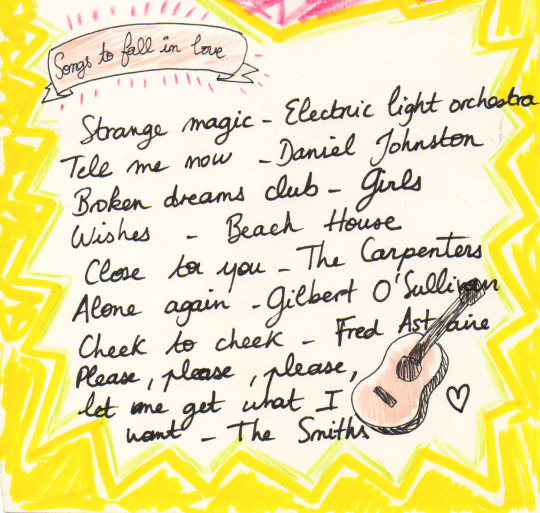 Songs to fall in love
Strange magic - Electric light orchestra
Tell me now - Daniel Johnston
Broken dreams club - Girls
Wishes - Beach House
Close to you - The Carpenters
Alone again - Gilbert O'Sullivan
Cheek to cheek - Fred Astaire
Please, please, please,
let me get what I
want - The Smiths